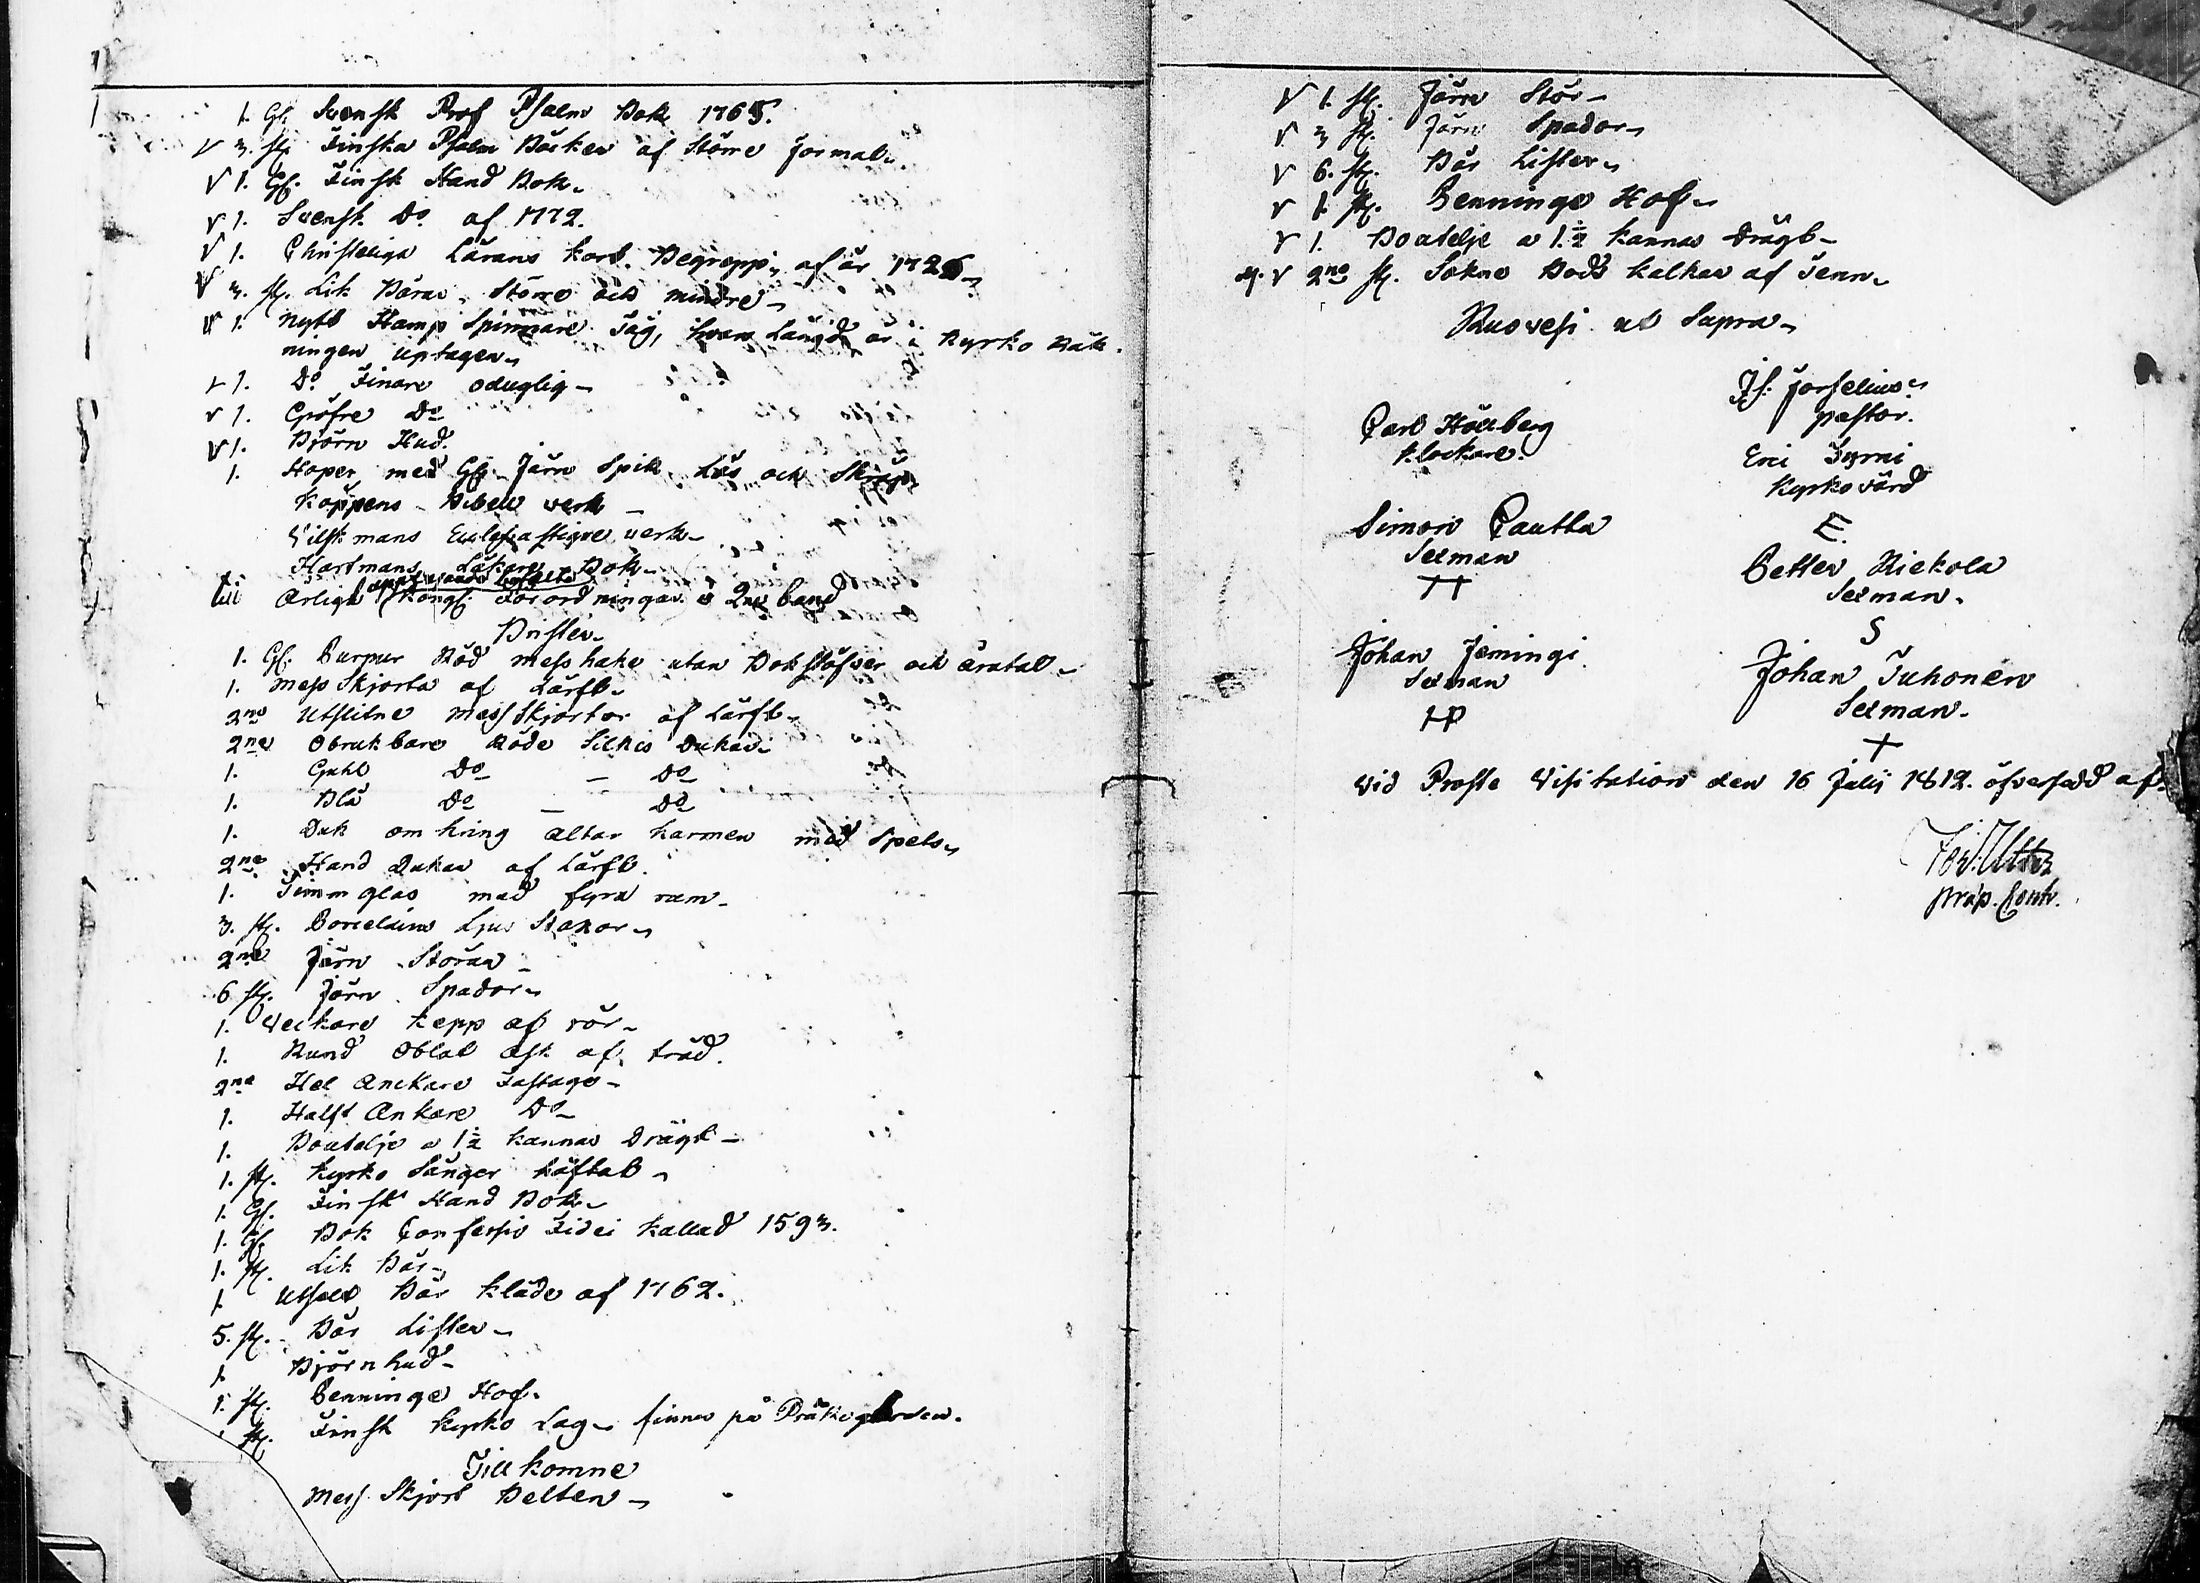 1. Gl. Svensk Prof Psalm Bok 1765.
V 3. st. Finska Psalm Böcker af Större format.
V 1. Gl. Finsk Hand Bok.
V 1. Svensk Do af 1772.
V 1. Christeliga Lärans kort. Begrepp, af år 1726
V 3. st. Lik Bårar, Större och mindre
V 1. nytt Hamp Spinnare Tåg, hvars Längd är i Kyrko Räk.
ningen uptagen
V 1. Do Finare oduglig
V 1. Gröfre Do
V 1. Björn Hud.
1. Hoper med Gl. Järn Spik, Lås och Skräp
Köppens Bibel verk
Vilskmans Ecclesiastique verk
Hartmans Läkare Bok
till Årliga Kongl. Förordningar i 2ne band
Brister.
1. Gl. Purpur Röd messhake utan Bokstäfver och åratal
1. Mess Skjorta af Lärft
2ne Utslitne Mess Skjortor af Lärft
2ne Obrukbare Röde Silkes Dukar
1. Guhl Do — Do
1. Blå Do — Do
1. Duk omkring Altar karmen med Spets
2ne Hand Dukar af Lärft.
1. Timm glas med fyra rum
3. st. Porcelains Ljus Stakar
2ne Järn Störar
6 st. Järn Spador
1. Veckare käpp af rör
1. Rund Oblat Ask af träd.
2ne Hel Anckare Fastage
1. Halft Ankare Do
1. Boutelje a 1½ kannas Drägt
1. st. Kyrko Sånger häftat
1. Gl. Finsk Hand Bok
1. Gl. Bok Confessio Fidei kallad 1593.
1. st. Lik Bår
1 Utslit Bår kläde af 1762.
5. st. Bår Lister
1 Björnhud
1. st. Penninge Hof.
st. Finsk Kyrko Lag finnes på Prästegården.
Tillkomne
Mess Skjort Belten
V 1. st. Järn Stör
V 3 st. Järn Spador
V 6. st. Bår Lister
V 1. st. Penninge Hof
V 1. Boutelje a 1½ kannas Drägt
V 2ne st. Sokne Bods kalkar af Tenn
Ruovesi ut Supra
Js. Forselius
pastor.
Carl Höckberg
klockare.
Eric Jyrni
Kyrkovärd
E
Simon Pautla
Sexman
Petter Niekola
Sexman.
S
Johan Jemingi
Sexman
HP
Johan Tuhonen
Sexman.
Vid Probste Visitation den 16 Julij 1812. öfversedd af
Præp. Contr.